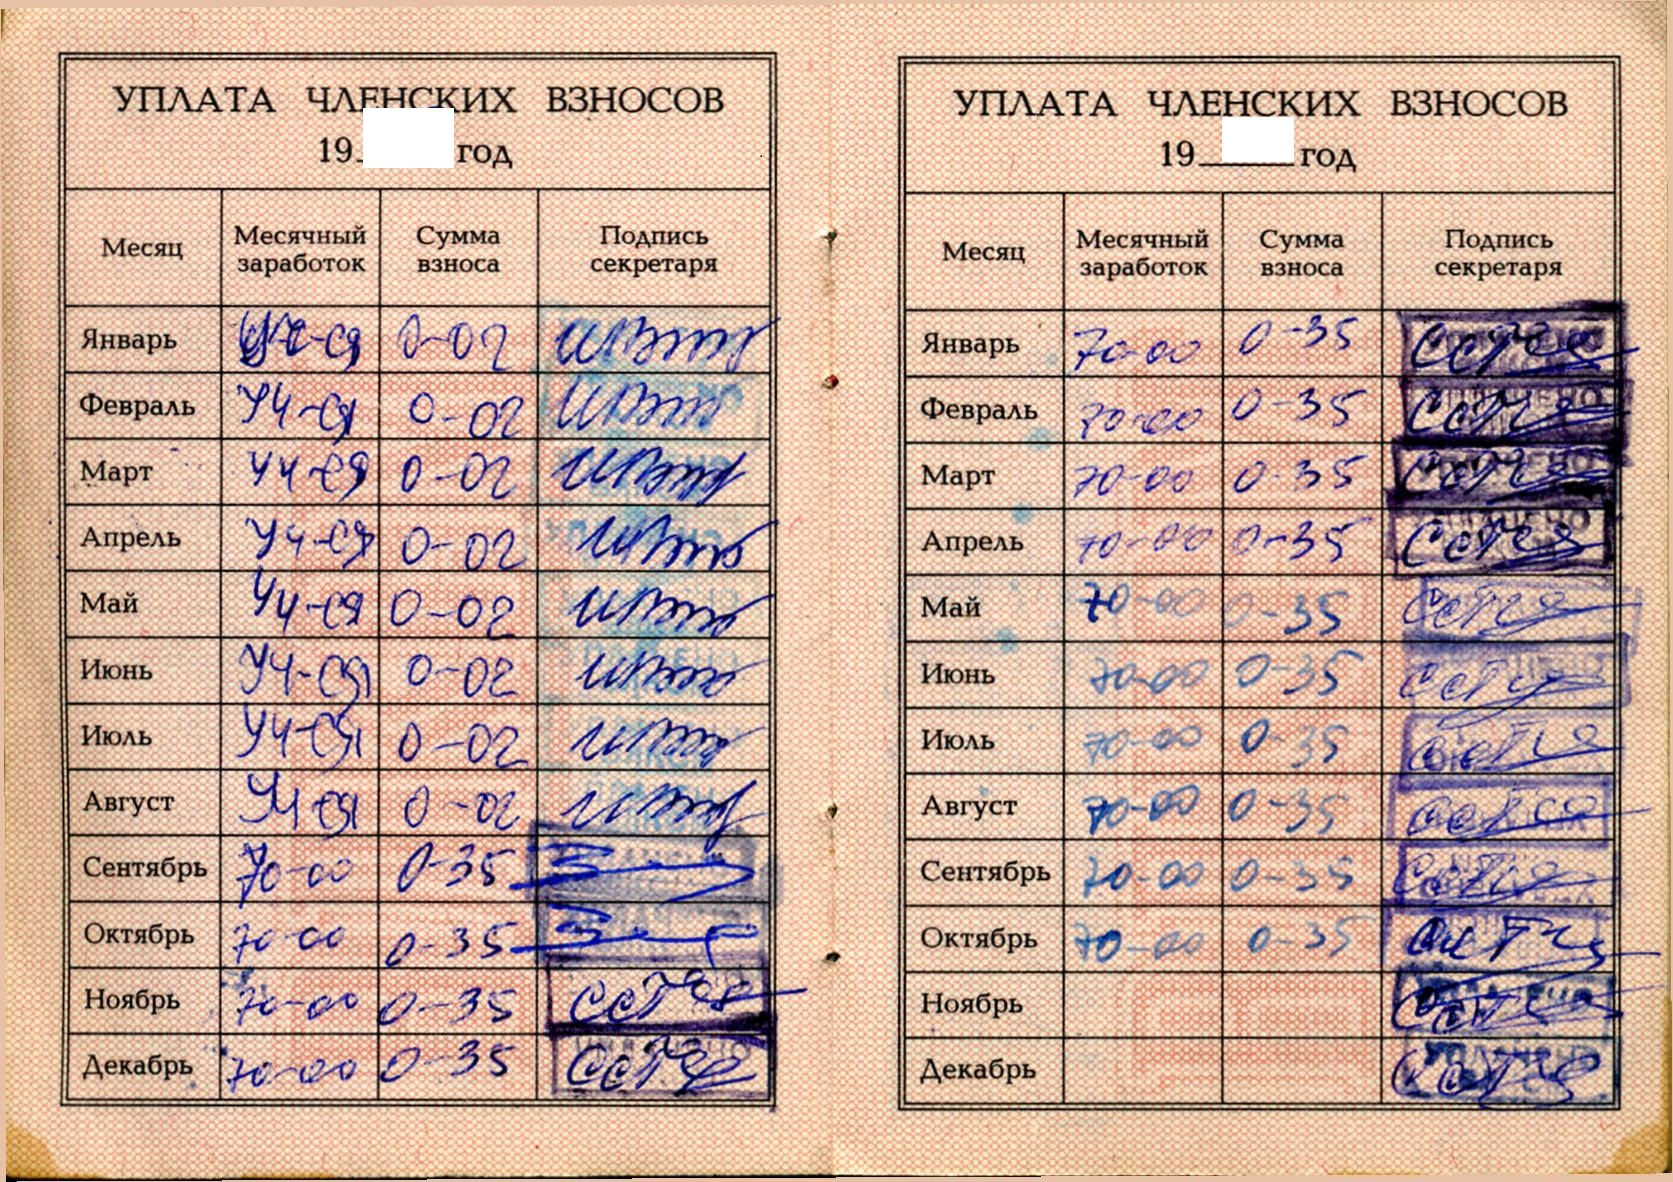 УПЛАТА ЧЛЕНСКИХ ВЗНОСОВ
19 год
Месяц Месячный заработок Сумма взноса Подпись секретаря
Январь 0-02
Февраль Уч-ся 0-02
Март Уч-ся 0-02
Апрель Уч-ся 0-02
Май Уч-ся 0-02
Июнь Уч-ся 0-02
Июль Уч-ся 0-02
Август Уч-ся 0-02
Сентябрь 70-00 0-35
Октябрь 70-00 0-35
Ноябрь 70-00 0-35
Декабрь 70-00 0-35
УПЛАТА ЧЛЕНСКИХ ВЗНОСОВ
19 год
Месяц Месячный заработок Сумма взноса Подпись секретаря
Январь 70-00 0-35
Февраль 70-00 0-35
Март 70-00 0-35
Апрель 70-00 0-35
Май 70-00 0-35
Июнь 70-00 0-35
Июль 70-00 0-35
Август 70-00 0-35
Сентябрь 70-00 0-35
Октябрь 70-00 0-35
Ноябрь
Декабрь